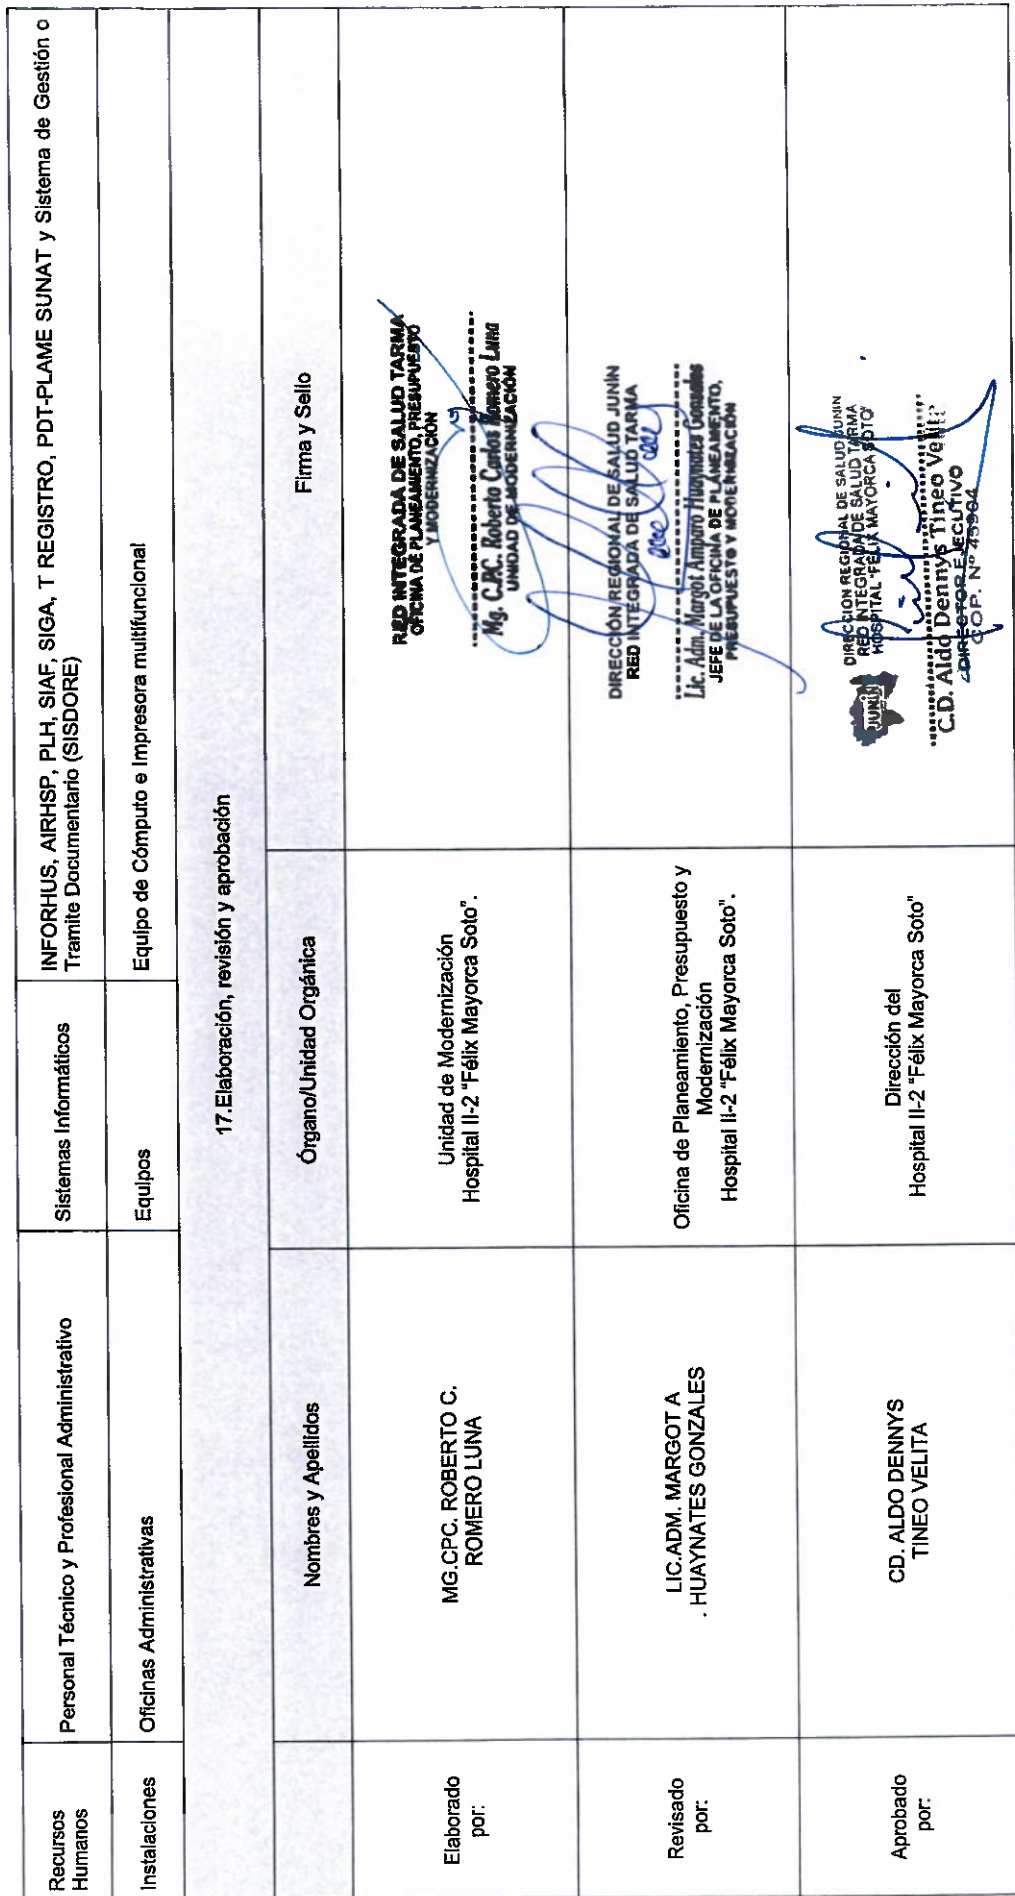 Recursos
Humanos
Personal Técnico y Profesional Administrativo
Sistemas Informáticos
INFORHUS, AIRHSP, PLH, SIAF, SIGA, T REGISTRO, PDT-PLAME SUNAT y Sistema de Gestión o
Tramite Documentario (SISDORE)
Instalaciones
Oficinas Administrativas
Equipos
Equipo de Cómputo e Impresora multifuncional
17.Elaboración, revisión y aprobación
Nombres y Apellidos
Órgano/Unidad Orgánica
Firma y Sello
Elaborado
por:
MG.CPC. ROBERTO C.
ROMERO LUNA
Unidad de Modernización
Hospital II-2 "Félix Mayorca Soto".
RED INTEGRADA DE SALUD TARMA
OFICINA DE PLANEAMIENTO, PRESUPUESTO
Y MODERNIZACIÓN
Mg. C.P.C. Roberto Carlos Romero Luna
UNIDAD DE MODERNIZACIÓN
Revisado
por:
LIC.ADM. MARGOT A
. HUAYNATES GONZALES
Oficina de Planeamiento, Presupuesto y
Modernización
Hospital II-2 "Félix Mayorca Soto".
DIRECCIÓN REGIONAL DE SALUD JUNÍN
RED INTEGRADA DE SALUD TARMA
Lic. Adm. Margot Amparo Huaynates Gonzales
JEFE DE LA OFICINA DE PLANEAMIENTO,
PRESUPUESTO Y MODERNIZACIÓN
Aprobado
por:
CD. ALDO DENNYS
TINEO VELITA
Dirección del
Hospital II-2 "Félix Mayorca Soto"
JUNÍN
DIRECCION REGIONAL DE SALUD JUNIN
RED INTEGRADA DE SALUD TARMA
HOSPITAL "FELIX MAYORCA SOTO"
C.D. Aldo Dennys Tineo Velita
DIRECTOR EJECUTIVO
COP. Nº 45904